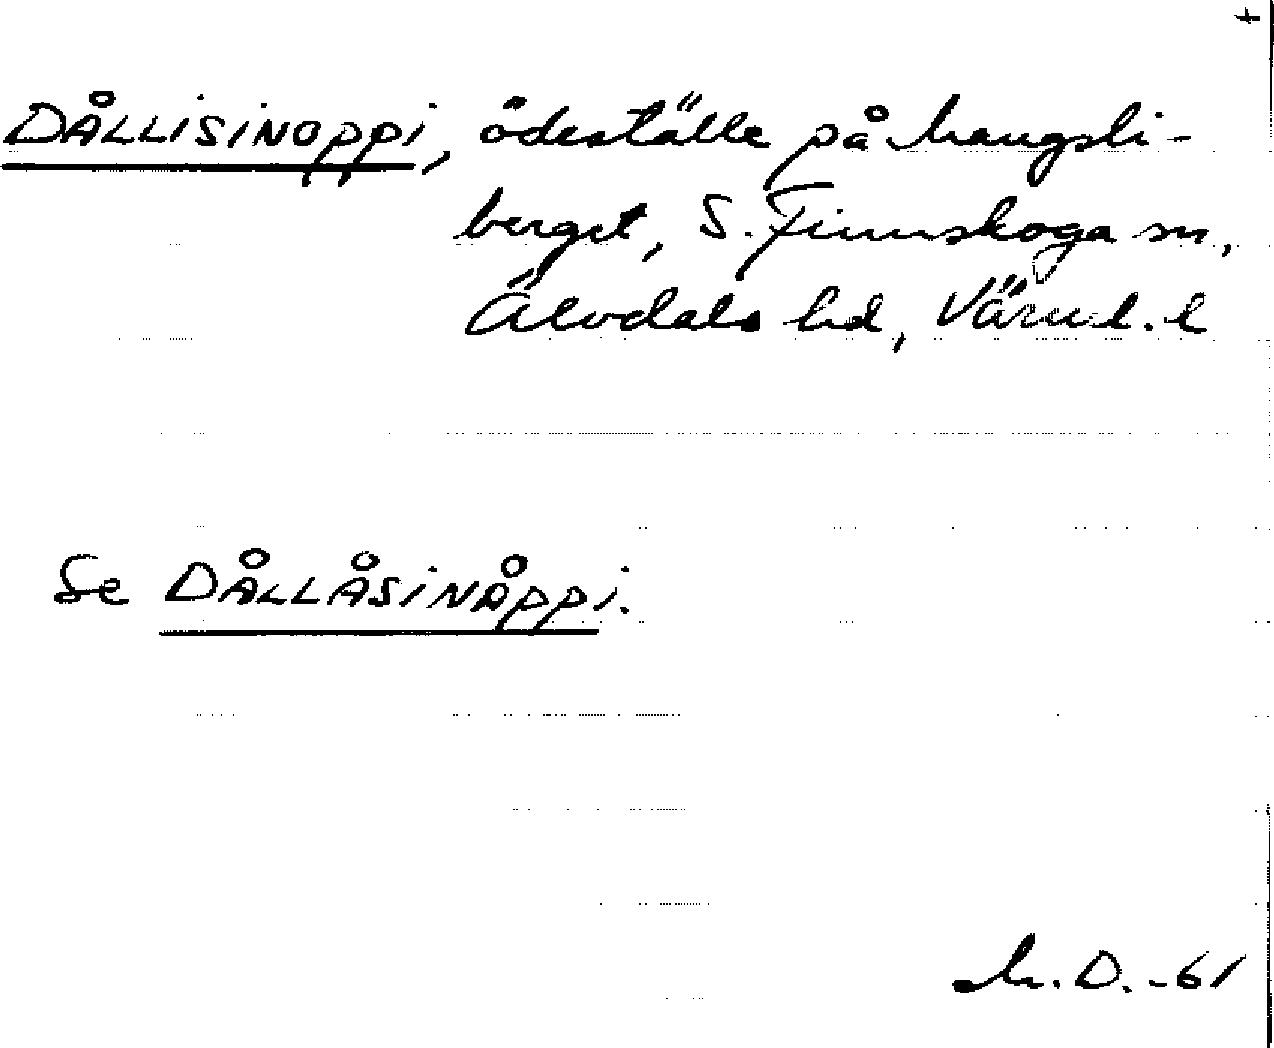 +
DÅLLISINOPPI, ödeställe på Mangsli-
berget, S. Finnskoga sn,
Älvdals hd, Värml. l
Se DÅLLÅSINÅPPI.
M. D. -61